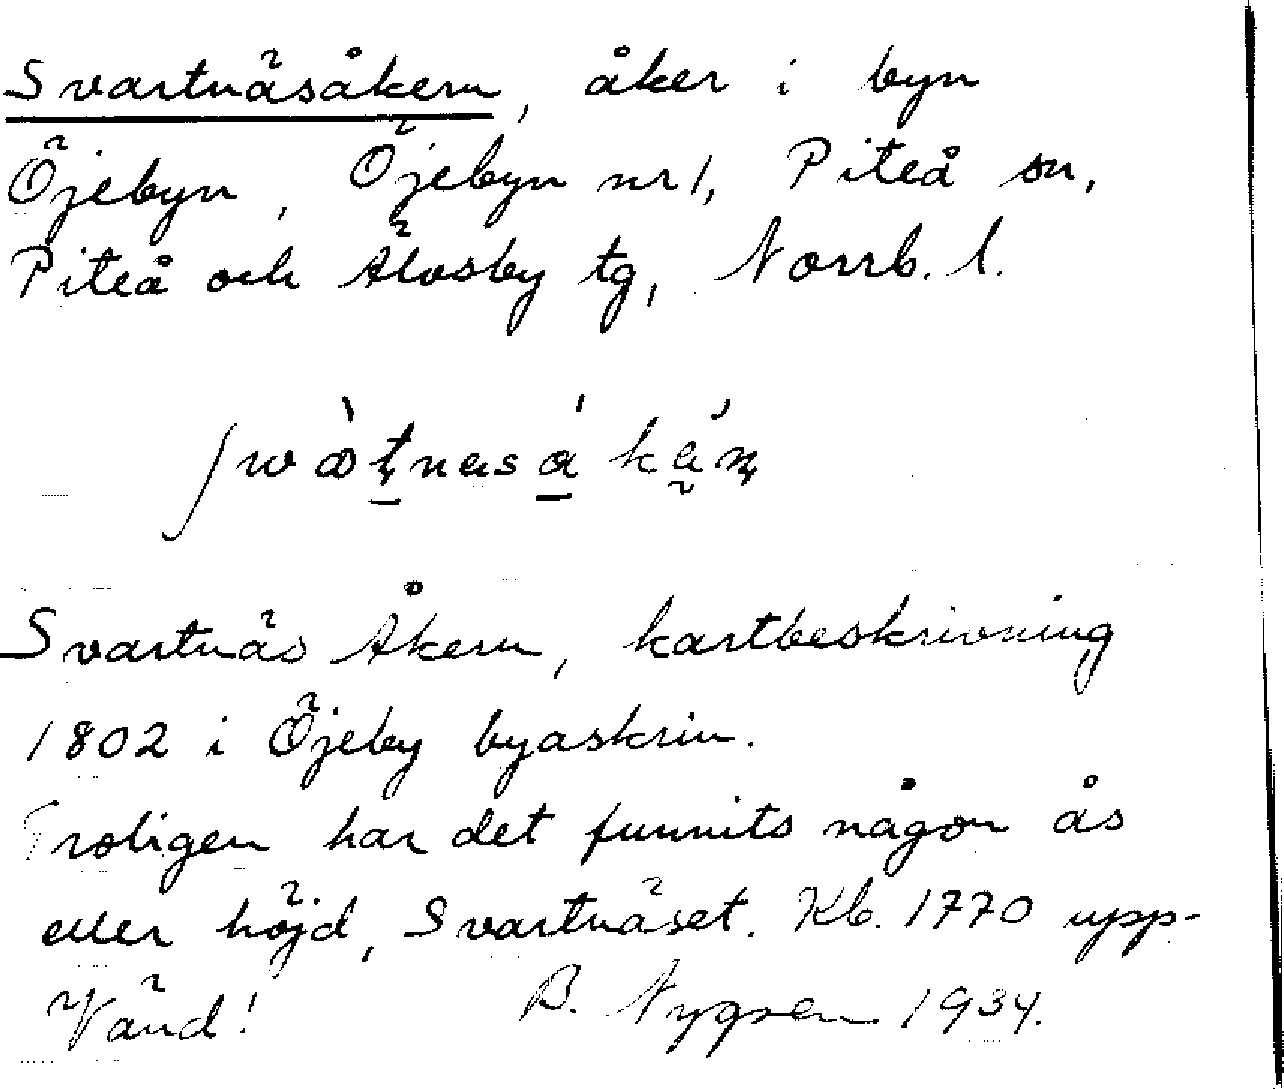 Svartnäsåkern, åker i byn
Öjebyn, Öjebyn nr 1, Piteå sn,
Piteå och Älvsby tg, Norrb. l.
Svartnäs Åkern, kartbeskrivning
1802 i Öjeby byaskrin.
Troligen har det funnits någon ås
eller höjd, Svartnäset. Kb. 1770 upp-
Vänd! B. Nygren 1934.